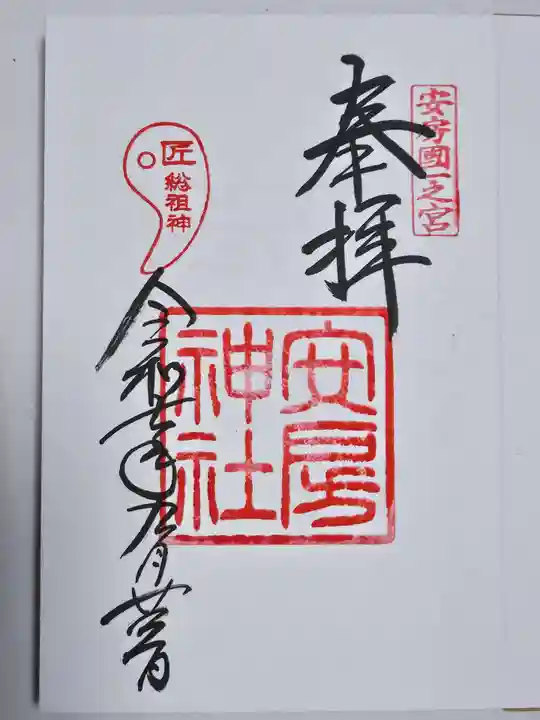 安房國一之宮
奉拝
安房
神社
匠
総祖神
令和七年九月廿三日